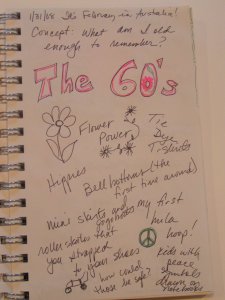 1/31/08 It's February in Australia!
Concept: What am I old
enough to remember?
The 60's
Flower
Power
Tie
Dye
T-shirts
Hippies
Bell bottoms (the
first time around)
Mini skirts and
gogo boots
my first
hula
hoop!
roller skates that
you strapped
to your shoes
how could
those be safe?
kids with
peace
symbols
drawn on
notebooks